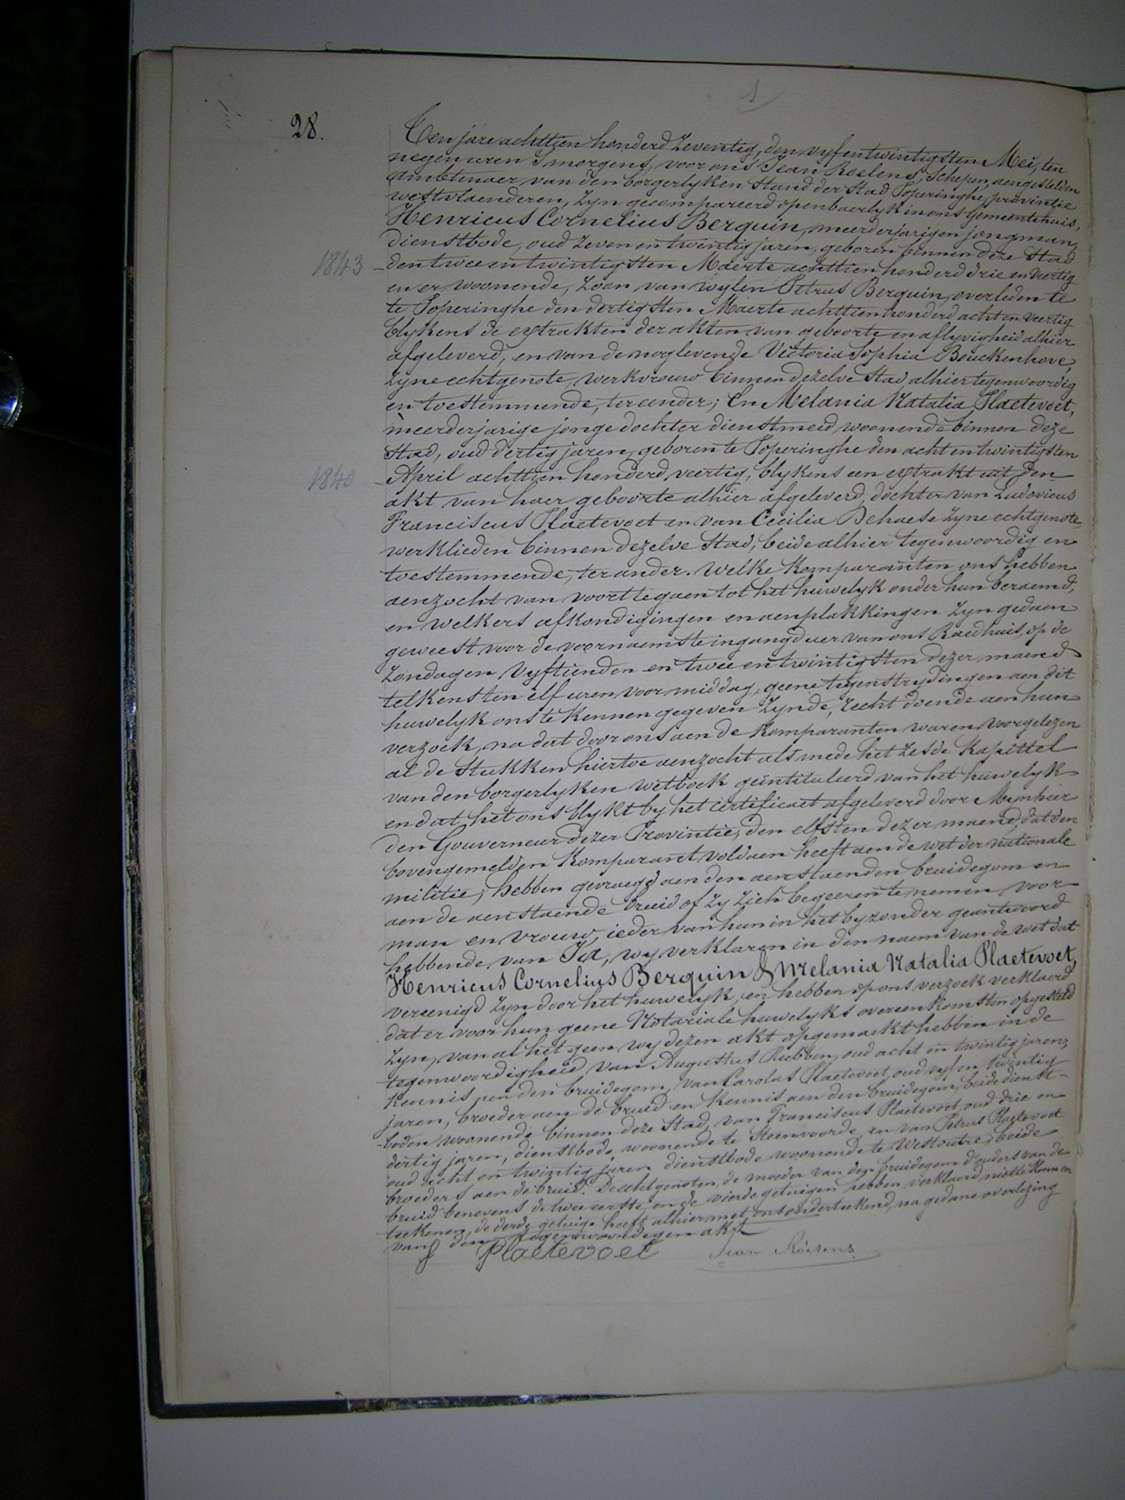 1
28.
Ten jare achttien honderd zeventig, den vyfentwintigsten Mei, ten
negen uren 's morgens, voor ons Jean Roelens, Schepen, aengestelden
ambtenaer van den borgerlyken stand der stad Poperinghe, provintie
westvlaenderen, zyn gecompareerd openbaerlyk in ons gemeentehuis,
Henricus Cornelius Berquin, meerderjarigen jongman,
dienstbode, oud zeven en twintig jaren, geboren binnen deze stad
1843 den twee en twintigsten Maerte achttien honderd drie en veertig
en er woonende, zoon van wylen Petrus Berquin, overleden te
te Poperinghe den dertigsten Maerte achttien honderd acht en veertig
blykens de extrakten der akten van geboorte en aflyvigheid alhier
afgeleverd, en van de noglevende Victoria Sophia Bouckenhove,
zyne echtgenote, werkvrouw binnen dezelve stad alhier tegenwoordig
en toestemmende, ter eender; En Melania Natalia Plaetevoet,
meerderjarige jonge dochter dienstmeid woonende binnen deze
stad, oud dertig jaren, geboren te Poperinghe den acht en twintigsten
1840 April achttien honderd veertig, blykens een extrakt uit den
akt van haer geboorte alhier afgeleverd, dochter van Ludovicus
Franciscus Plaetevoet en van Cecilia Behaese zyne echtgenote,
werklieden binnen dezelve stad, beide alhier tegenwoordig en
toestemmende, ter ander. Welke komparanten ons hebben
aenzocht van voort te gaen tot het huwelyk onder hun beraemd,
en welkers afkondigingen en aenplakkingen zyn gedaen
geweest voor de voornaemste ingangdeur van ons Raedhuis, op de
zondagen vyftienden en twee en twintigsten dezer maend
telkens ten elf uren voor middag, geene tegenstrydingen aen dit
huwelyk ons te kennen gegeven zynde, recht doende aen hun
verzoek, na dat door ons aen de komparanten waren voorgelezen
al de stukken hiertoe aenzocht alsmede het zesde kapittel
van den borgerlyken wetboek geïntituleerd van het huwelyk
en dat het ons blykt by het certificaet afgeleverd door Mynheer
den Gouverneur dezer Provintie, den elfsten dezer maend, dat den
bovengemelden komparant voldaen heeft aen de wet der nationale
militie; hebben gevraegd aen den aenstaenden bruidegom en
aen de aenstaende bruid of zy zich begeeren te nemen voor
man en vrouw, ieder van hun in het byzonder geantwoord
hebbende, van Ja, wy verklaren in den naem van de wet dat
Henricus Cornelius Berquin & Melania Natalia Plaetevoet,
vereenigd zyn door het huwelyk, en hebben op ons verzoek verklaerd
dat er voor hun geene Notariale huwelyks overeenkomsten opgesteld
zyn, van al het geen wy dezen akt opgemaekt hebben in de
tegenwoordigheid van Augustus Rubben, oud acht en twintig jaren,
kennis aen den bruidegom, van Carolus Plaetevoet, oud vyf en twintig
jaren, broeder aen de bruid en kennis aen den bruidegom, beide dienst-
boden woonende binnen deze Stad, van Franciscus Plaetevoet oud drie en
dertig jaren, dienstbode, woonende te Steenvoorde en van Petrus Plaetevoet
oud acht en twintig jaren dienstbode woonende te Westoutre, beide
broeders aen de bruid. De echtgenoten, de moeder van den bruidegom d'ouders van de
bruid benevens de twee eerste en de vierde getuigen hebben verklaerd niet te konnen
teekenen, de derde getuige heeft alhier met ons onderteekend, na gedane overlezing
van den tegenwoordigen akt
Plaetevoet Jean Roelens